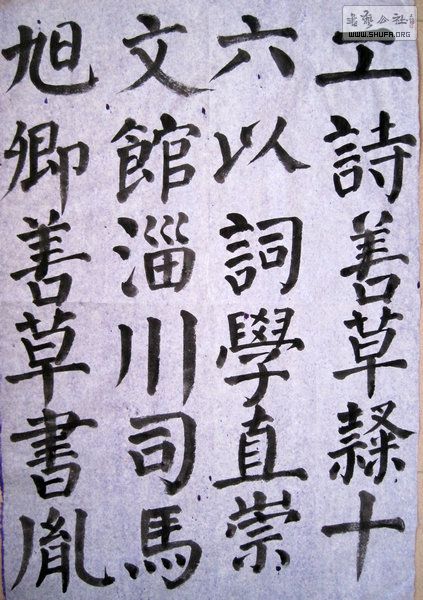 工詩善草隸十
六以詞學直崇
文館淄川司馬
旭卿善草書胤
書藝公社
WWW.SHUFA.ORG